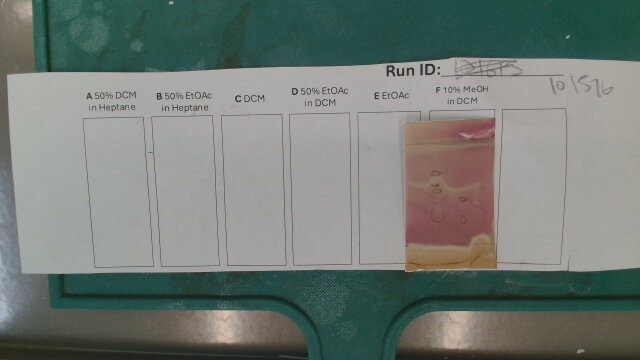 Run ID:
101576
A 50% DCM
in Heptane
B 50% EtOAc
in Heptane
C DCM
D 50% EtOAc
in DCM
E EtOAc
F 10% MeOH
in DCM